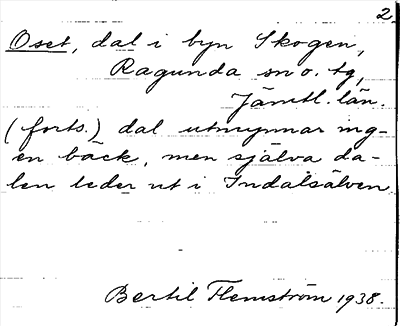 2
Oset, dal i byn Skogen,
Ragunda sn o. tg,
Jämtl. län.
(forts.) dal utmynnar ing-
en bäck, men själva da-
len leder ut i Indalsälven
Bertil Flemström 1938.